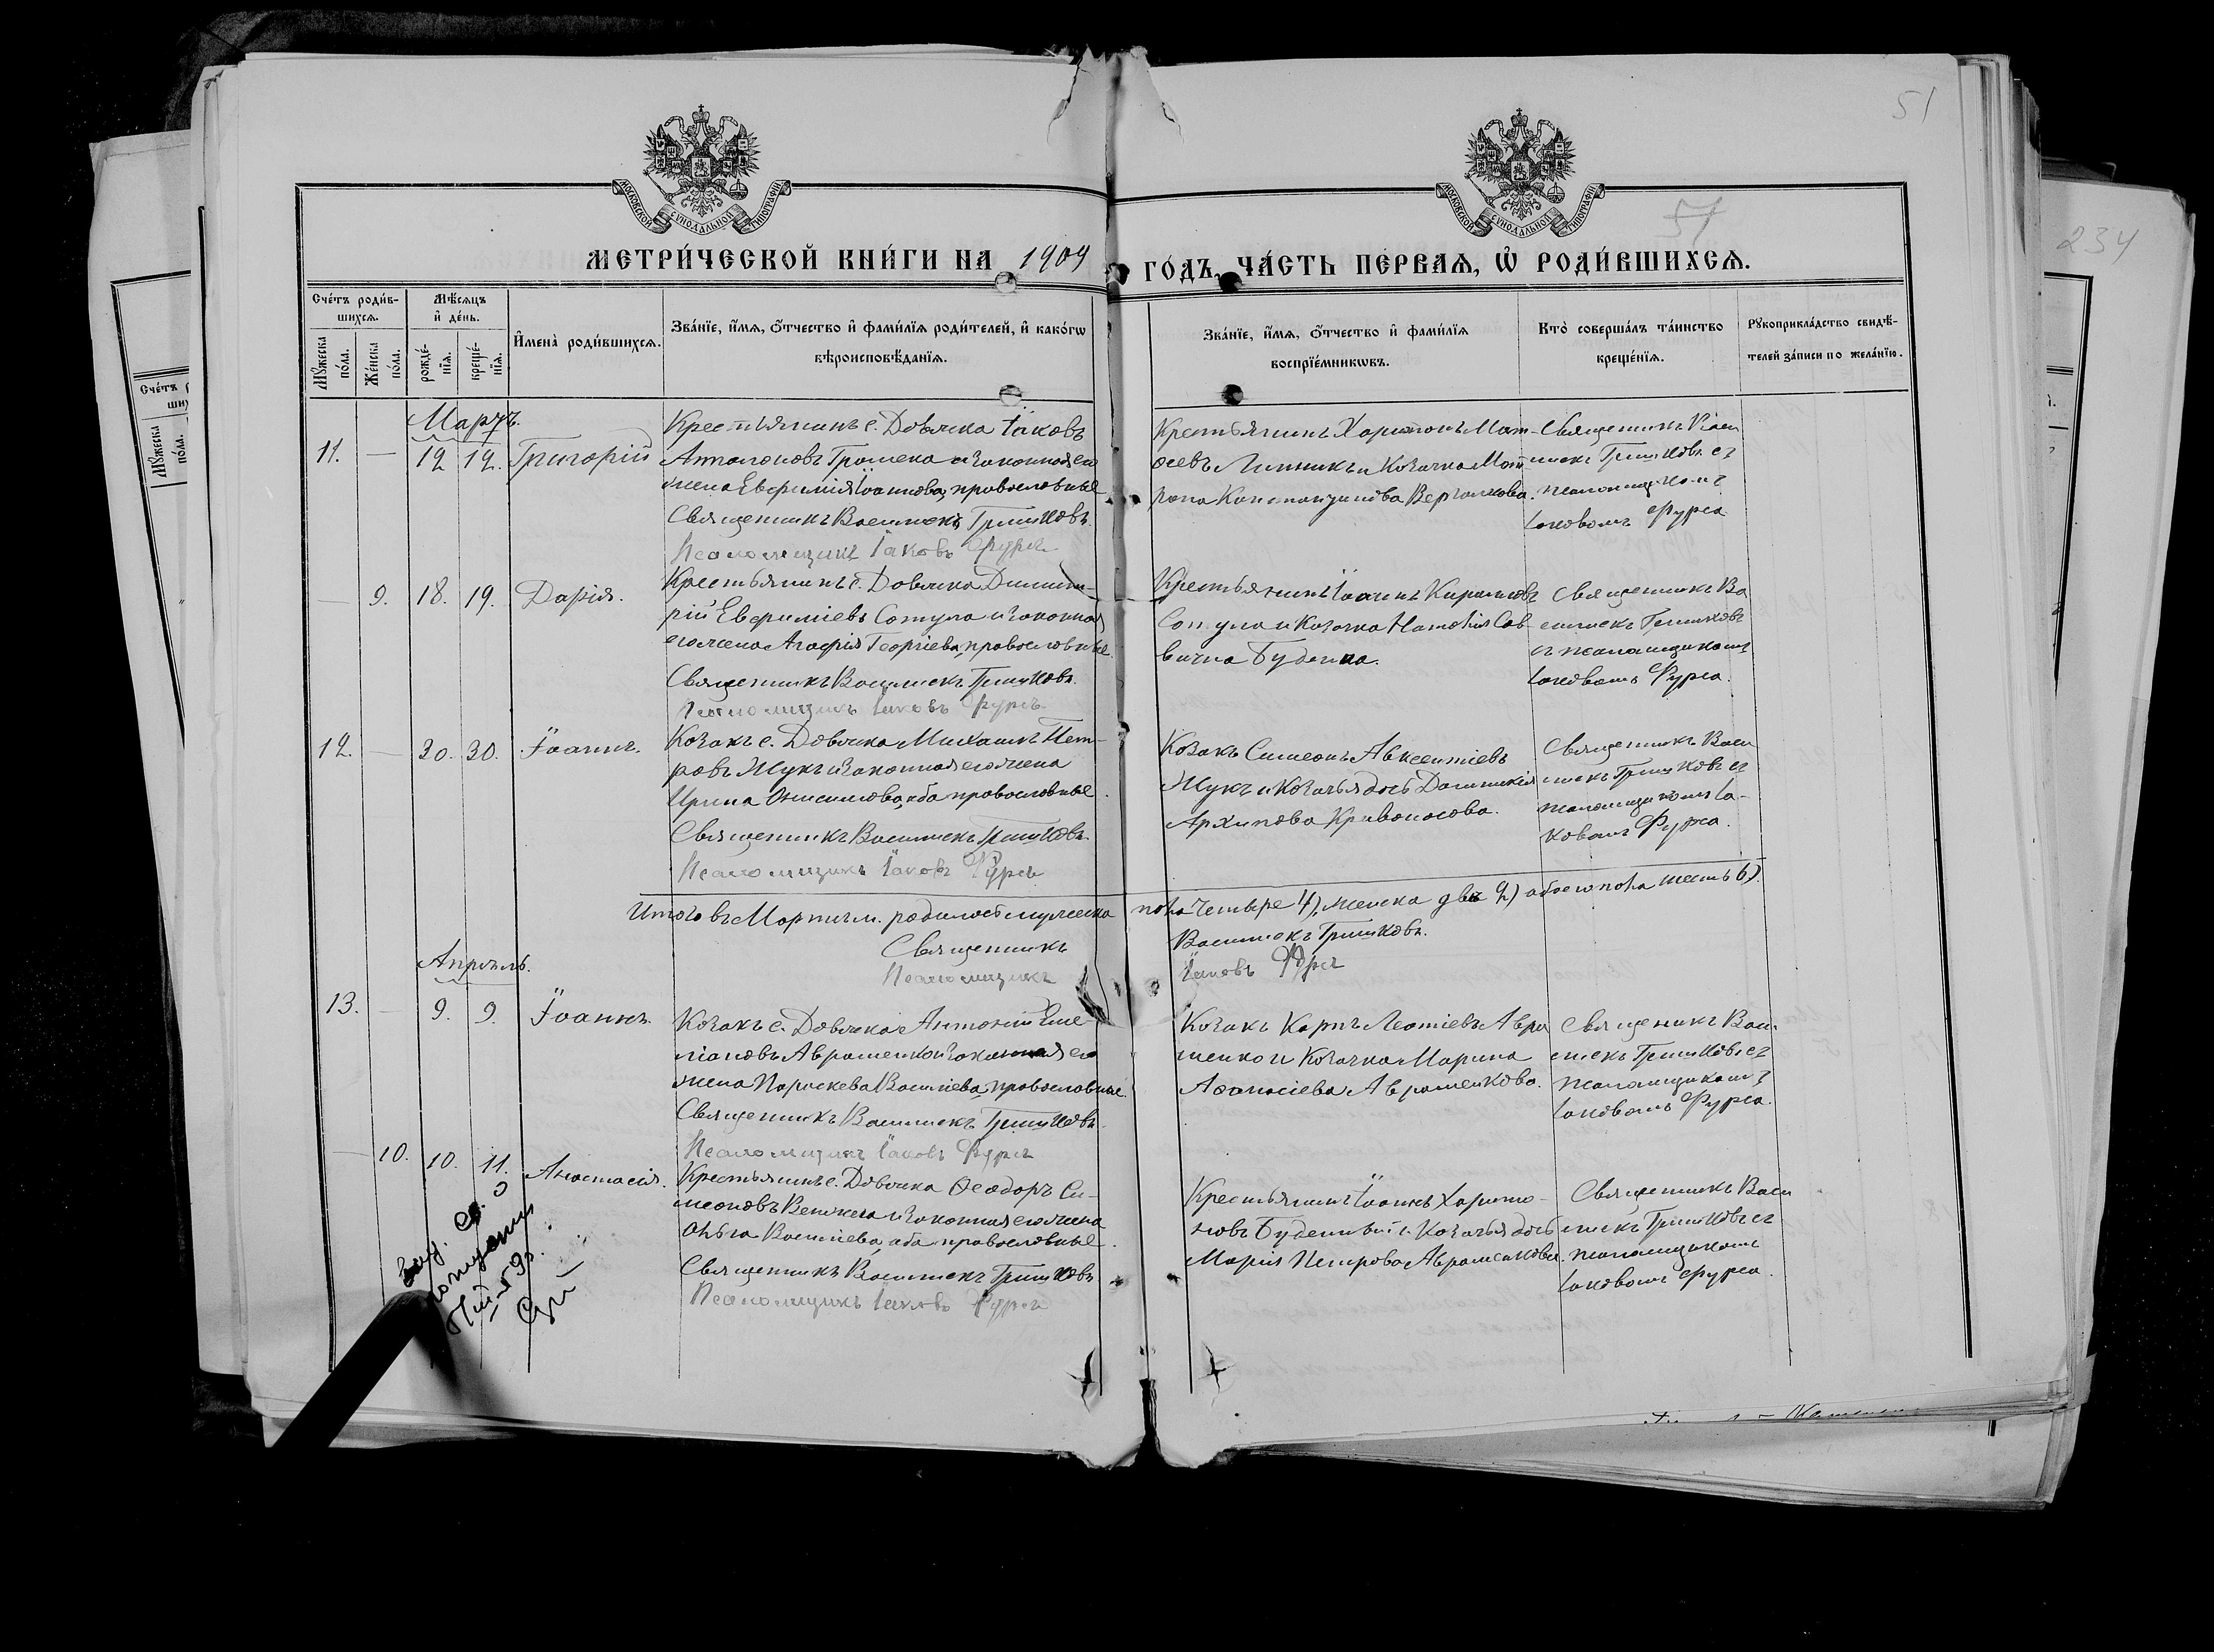 51
МОСКОВСКОЙ СѴНОДАЛЬНОЙ ТИПОГРАФІИ
МОСКОВСКОЙ СѴНОДАЛЬНОЙ ТИПОГРАФІИ
51
234
МЕТРИ́ЧЕСКОЙ КНИ́ГИ НА 1909 ГО́ДЪ, ЧА́СТЬ ПЕ́РВАѦ, Ѡ҆ РОДИ́ВШИХСѦ.
Сче́тъ роди́в-
шихсѧ.
Мѣ́сѧцъ
и҆ де́нь.
Мꙋ́жеска по́ла.
Же́нска по́ла.
рожде́-нїѧ.
креще́-нїѧ.
И҆мена̀ роди́вшихсѧ.
Зва́нїе, и҆́мѧ, ѻ҆́тчество и҆ фами́лїѧ роди́телей, и҆ како́гѡ
вѣроисповѣ́данїѧ.
Зва́нїе, и҆́мѧ, ѻ҆́тчество и҆ фами́лїѧ
воспрїе́мникѡвъ.
Кто̀ соверша́лъ та́инство
креще́нїѧ.
Рꙋкоприкла́дство свидѣ́-
телей за́писи по жела́нїю.
Мартъ.
11. — 12 12. Григорій
Крестьянинъ с. Довжка Іаковъ
Громека и законная его
жена Евфимія Іоаннова, православные
Священникъ Василискъ Гришковъ.
Псаломщикъ Іаковъ Фурса
Крестьянинъ Харитонъ Мат-
ѳеевъ Линникъ и Козачка Мат-
рона Константинова
Священникъ Васи
лискъ Гришковъ съ
псаломщикомъ
Іаковомъ Фурса.
— 9. 18. 19. Дарія.
Крестьянинъ с. Довжка Димит-
рій Евфиміевъ Сотула и законная
его жена Агафія Георгіева, православные.
Священникъ Василискъ Гришковъ.
Псаломщикъ Іаковъ Фурса
Крестьянинъ Іоаннъ
Сотула и Козачка Наталія Сав-
вична Буденка.
Священникъ Ва
силискъ Гришковъ
съ псаломщикомъ
Іаковомъ Фурса.
12. — 30. 30. Іоаннъ.
Козакъ с. Довжка Михаилъ Пет-
ровъ Жукъ и законная его жена
Ирина Онисимова, оба православные.
Священникъ Василискъ Гришковъ.
Псаломщикъ Іаковъ Фурса
Козакъ Симеонъ Авксентіевъ
Жукъ и Козачья дочь Домникія
Архипова Кривоносова.
Священникъ Васи
лискъ Гришковъ съ
псаломщикомъ Іа-
ковомъ Фурса.
Итого въ Мартѣ м. родилось мужеска пола четыре 4), женска двѣ 2) обоего пола шесть 6).
Священникъ Василискъ Гришковъ.
Псаломщикъ Іаковъ Фурса
Апрѣль.
13. — 9. 9. Іоаннъ.
Козакъ с. Довжка Антоній Еме-
ліановъ Авраменко и законная его
жена Параскева Василіева, православные.
Священникъ Василискъ Гришковъ.
Псаломщикъ Іаковъ Фурса
Козакъ Карпъ Леонтіевъ Авра
менко и Козачка Марина
Аѳанасіева Авраменкова.
Священникъ Васи-
лискъ Гришковъ съ
псаломщикомъ
Іаковомъ Фурса.
— 10. 10. 11. Анастасія.
Крестьянинъ с. Довжка Ѳеодоръ Си-
меоновъ и законная его жена
Ольга Василіева, оба православные.
Священникъ Василискъ Гришковъ
Псаломщикъ Іаковъ Фурса
Крестьянинъ Іоаннъ Харито-
новъ и Козачья дочь
Марія Петрова Авраменкова.
Священникъ Васи
лискъ Гришковъ съ
псаломщикомъ
Іаковомъ Фурса.